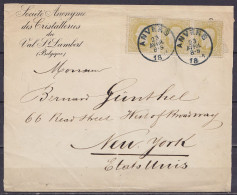 Société Anonyme
des Cristalleries
du
Val St Lambert
(Belgique)
ANVERS
23
18
Monsieur
Bernard Günthel
66 Rear Street West of Broadway
New York
Etats Unis